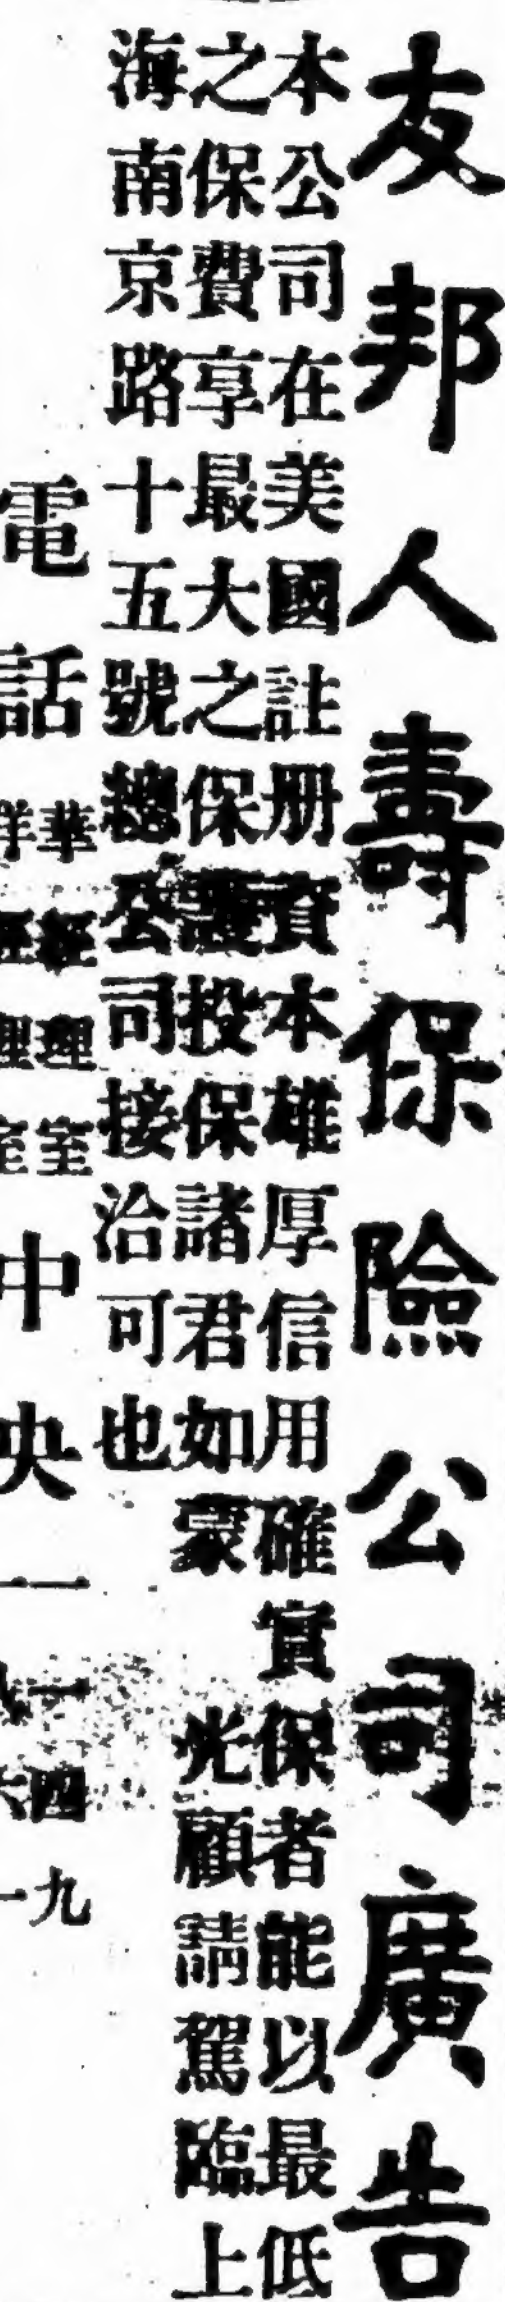 友邦人壽保險公司廣告
本公司在美國註册資本雄厚信用確實保者能以最低
之保費享最大之保護投保諸君如蒙 光顧請駕臨上
海南京路十五號總公司接洽可也
電話 華經理室 中央一一四九
洋經理室